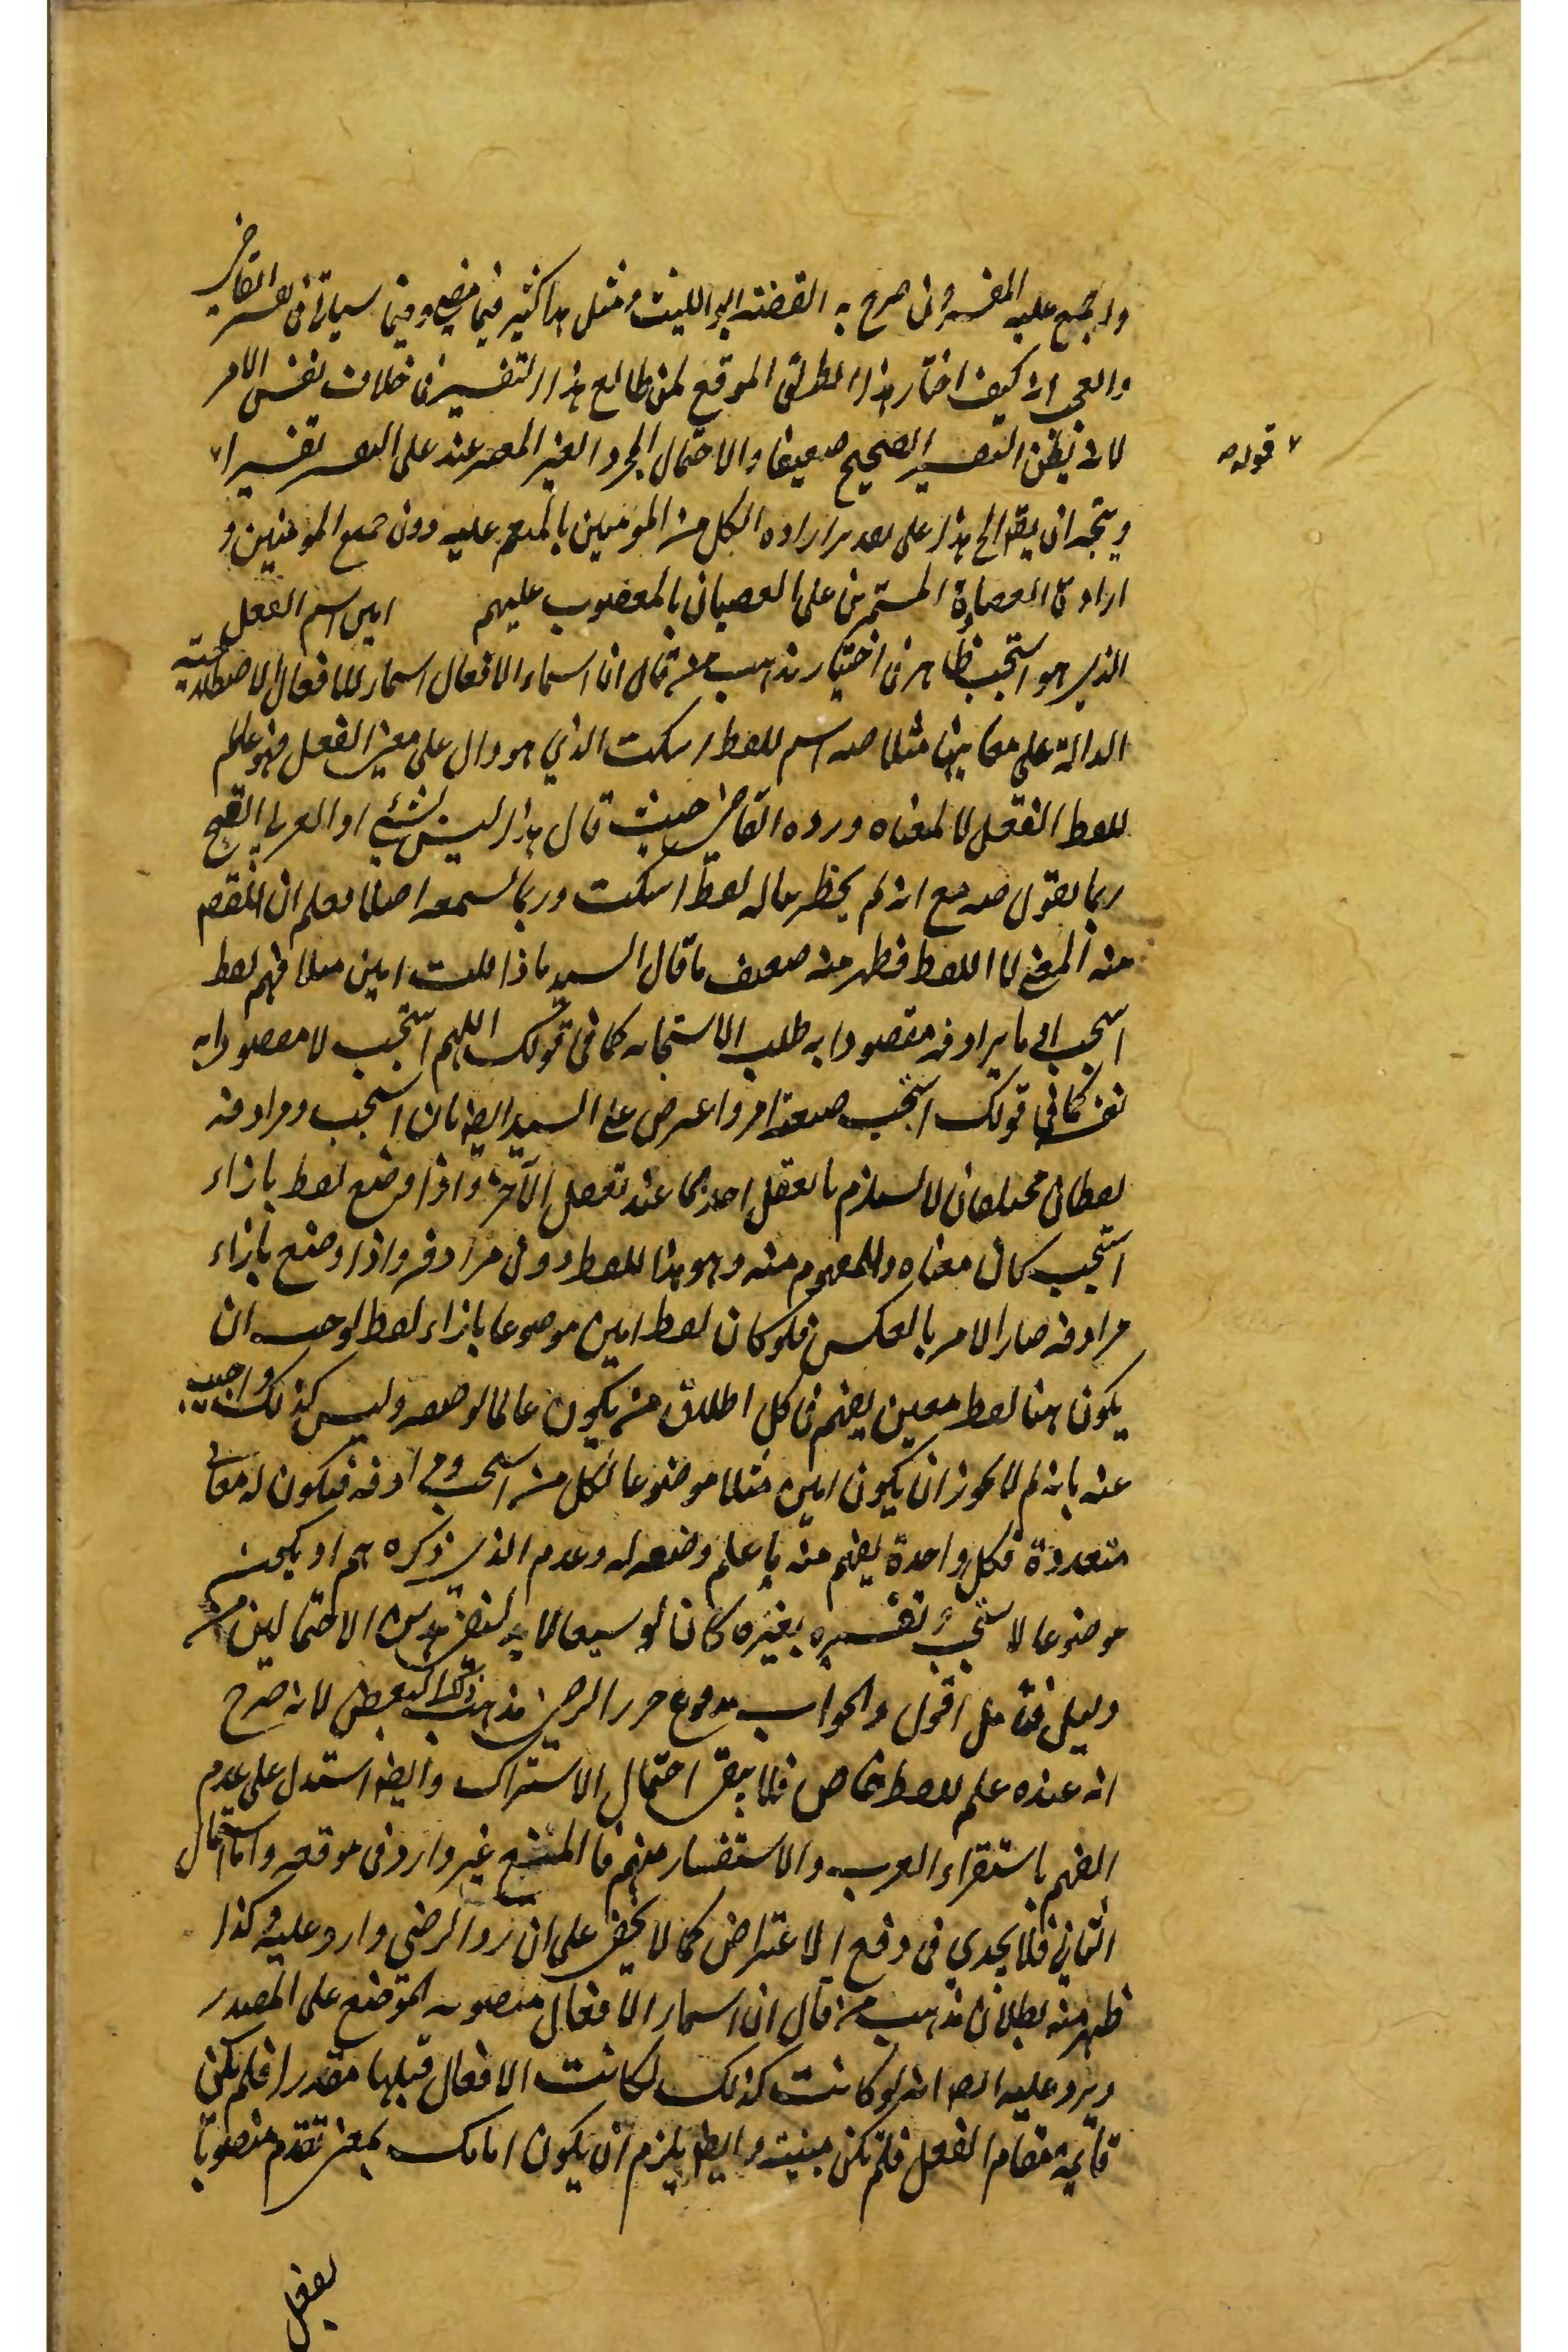 واجمع عليه المفسرون صرح به الفقيه ابو الليث ومثل هذا كثير فيما مضى وفيما سيأتى فى تفسير القاضى
والعجب انه كيف اختار هذا الطريق الموقع لمن طالع هذا التفسير فى خلاف نفس الامر
لانه يظن التفسير الصحيح ضعيفا والاحتمال المجرد الغير المعتبر عند على التفسير تفسيرا
قوله
ويتجه ان يقال هذا على تقدير ارادة الكل من المؤمنين بالمنعم عليه دون جميع المؤمنين و
ارادة العصاة المستمرين على العصيان بالمغضوب عليهم امين اسم الفعل
الذى هو استجب ظاهر فى اختيار مذهب من قال ان اسماء الافعال اسماء للافعال الاصطلاحية
الدالة على معانيها مثلا صه اسم للفظ اسكت الذي هو دال على معنى الفعل فهو علم
للفظ الفعل لا لمعناه ورده القاضى حيث قال هذا ليس بشئ اذ العربى القح
ربما يقول صه مع انه لم يخطر بباله لفظ اسكت وربما لم يسمعه اصلا فعلم ان المقصود
منه المعنى لا اللفظ فظهر منه ضعف ما قال السيد ماذا قلت امين مثلا فهم لفظ
استجب او ما يرادفه مقصودا به طلب الاستجابه كما فى قولك اللهم استجب لا مقصودا به
نفسه كما فى قولك استجب صيغة امر واعترض على السيد ايضا بان استجب ومرادفه
لفظان مختلفان لا يستلزم تعقل احدهما عند تعقل الآخر واذا وضع لفظ بازاء
استجب كان معناه والمفهوم منه وهو هذا اللفظ دون مرادفه واذا وضع بازاء
مرادفه صار الامر بالعكس فلو كان لفظ امين موضوعا بازاء لفظ لوجب ان
يكون هنا لفظ معين يفهم فى كل اطلاق من يكون عالما لوضعه وليس كذلك واجيب
عنه بانه لم لا يجوز ان يكون امين مثلا موضوعا لكل من استجب ومرادفه فيكون له معانى
متعددة فكل واحدة يفهم منه ما علم وضعه له وعدم الذى ذكره هم او يكون
موضوعا لاستجب وتفسيره بغيره كان توسيعا لا بد لنفى هذين الاحتمالين من
دليل فتأمل اقول والجواب مدفوع حرر الرضى مذهب ذلك البعض لانه صرح
انه عنده علم للفظ خاص فلا يبقى احتمال الاشتراك وايضا استدل على عدم
الفهم باستقراء العرب والاستفسار منهم فالمنع غير وارد فى موقعه واما احتمال
الثانى فلا يجدي فى دفع الاعتراض كما لا يخفى على ان رد الرضى وارد عليه وكذا
ظهر منه بطلان مذهب من قال ان اسماء الافعال منصوبه الموضع على المصدر
ويرد عليه ايضا انه لو كانت كذلك لكانت الافعال قبلها مقدرا فلم يكن
قائمة مقام الفعل فلم تكن مبنية وايضا يلزم ان يكون امامك بمعنى تقدم منصوبا
بفعل